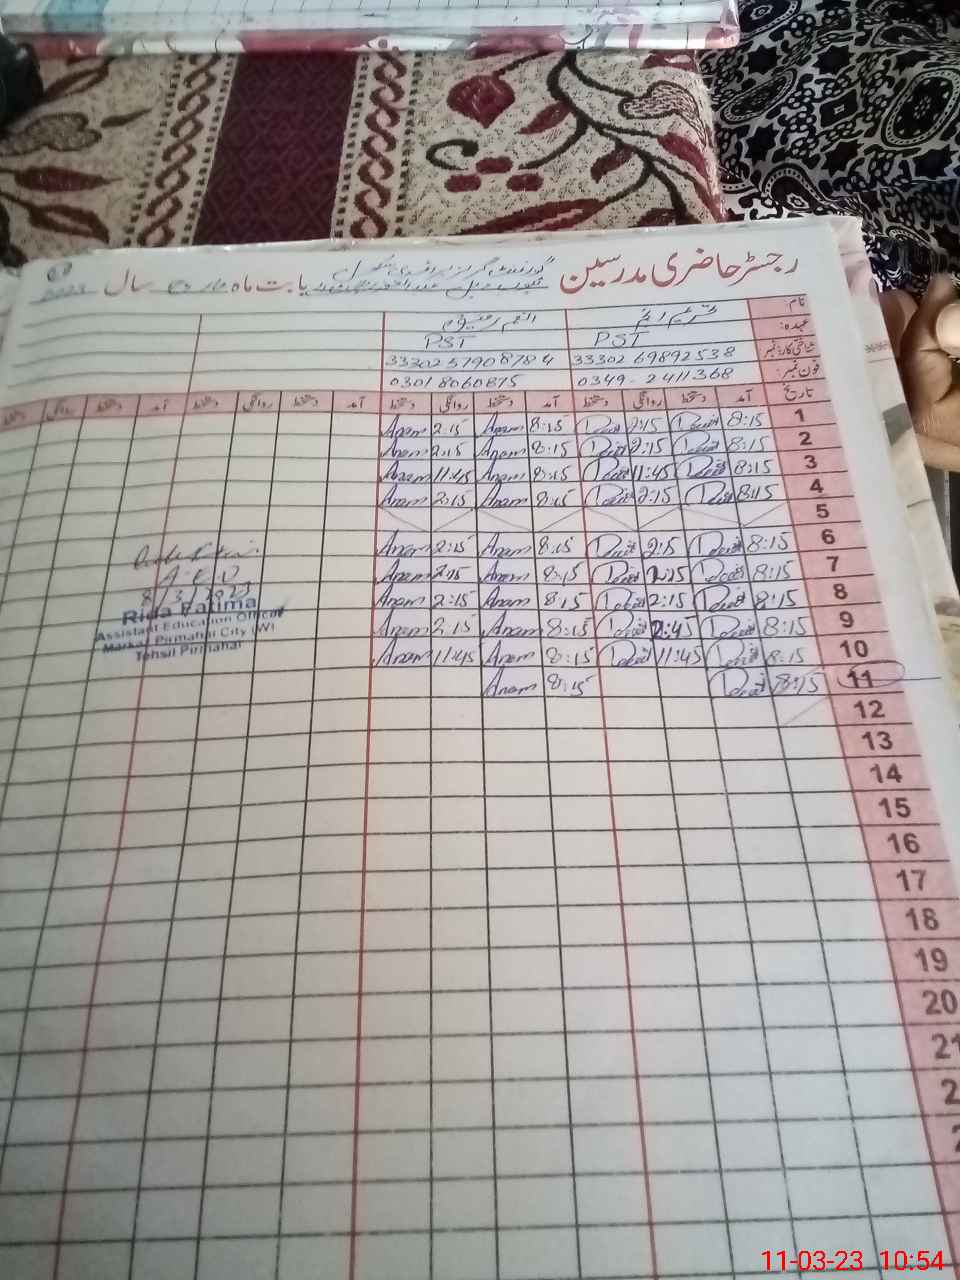 رجسٹر حاضری مدرسین گورنمنٹ گرلز پرائمری سکول بابت ماہ مارچ سال 2023
نام:
عہدہ: PST PST
شناختی کارڈ نمبر: 33302 69892538 33302 57908784
فون نمبر: 0349-2411368 03018060875
تاریخ آمد دستخط روانگی دستخط آمد دستخط روانگی دستخط آمد دستخط روانگی دستخط آمد دستخط روانگی دستخط
1 8:15 2:15 8:15 Anam 2:15 Anam
2 8:15 2:15 8:15 Anam 2:15 Anam
3 8:15 11:45 8:15 Anam 11:45 Anam
4 8:15 2:15 8:15 Anam 2:15 Anam
5
6 8:15 2:15 8:15 Anam 2:15 Anam
7 8:15 2:15 8:15 Anam 2:15 Anam
8 8:15 2:15 8:15 Anam 2:15 Anam
9 8:15 2:45 8:15 Anam 2:15 Anam
10 8:15 11:45 8:15 Anam 11:45 Anam
11 8:15 8:15 Anam
12
13
14
15
16
17
18
19
20
21
A.E.O
8/3/2023
Rida Fatima
Assistant Education Officer
Markaz Pirmahal City (W)
Tehsil Pirmahal
11-03-23 10:54